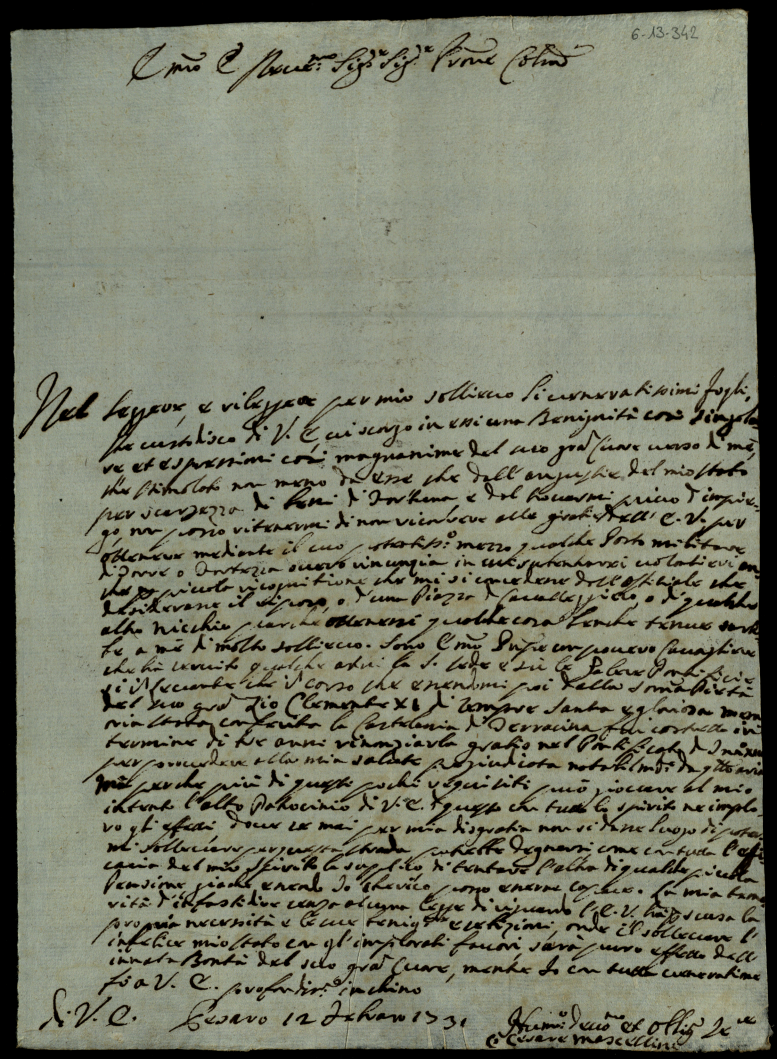 6-13-342
Emo e Sig.r Sig.r Prone Colmo
Nel leggere, e rileggere per mio sollievo li veneratissimi fogli,
che custodisco di V. E., vi scorgo in essi una Benignità così singola
re et espressioni così magnanime del suo gran Cuore verso di me,
che stimolato non meno da esse che dall'angustie del mio stato
per scarzezza di beni di fortuna e del trovarmi privo d'impie-
go, non posso ritenermi di non ricorrere alle grazie dell' E. V. per
ottenere mediante il suo mezzo qualche Posto militare
di Torre o Fortezza overo
che piccola ricognitione che mi si concedesse dell'Offitiale che
desiderasse il riposo, o d'una Piazza di o di qualche
altro nicchio purche ottenessi qualche cosa benche tenue
a me di molto sollievo. Sono Emo un povero Cavagliere
che hà servito qualche anni la S. Sede e sù le Galere Pontificie
che il corso che essendomi poi dalla Pietà
del suo gran Zio Clemente XI di sempre Santa e gloriosa mem
oria stata conferita la Castellania di Terracina fui costretto in
termine di tre anni rinunziarla gratis nel Pontificato d'
per provedere alla mia salute pregiudicata
perche più di questi pochi requisiti può giovare al mio
intento l'alto Patrocinio di V. E. questo con tutto lo spirito ne implo-
ro gli effetti dove se mai per mia disgratia non si desse luogo di poter
mi sollevare per questa strada potrebbe degnarsi come con tutta l'effi
cacia del mio spirito la supplico di tentare l'alta di qualche piccola
Pensione giache essendo Io Cherico posso esserne capace. La mia teme
rità d'infastidire senza alcuna legge di riguardo l'E. V. la
propria necessità e le sue benigne onde il sollevare l'
infelice mio stato con gl'implorati favori, sarà puro effetto dell'
innata Bontà del suo gran Cuore, mentre Io con tutta veneratione
fò a V. E. profondis.o inchino
di V. E. Pesaro 12 1731
Humo Devmo et Obbligo Sre
Cesare Moscellini